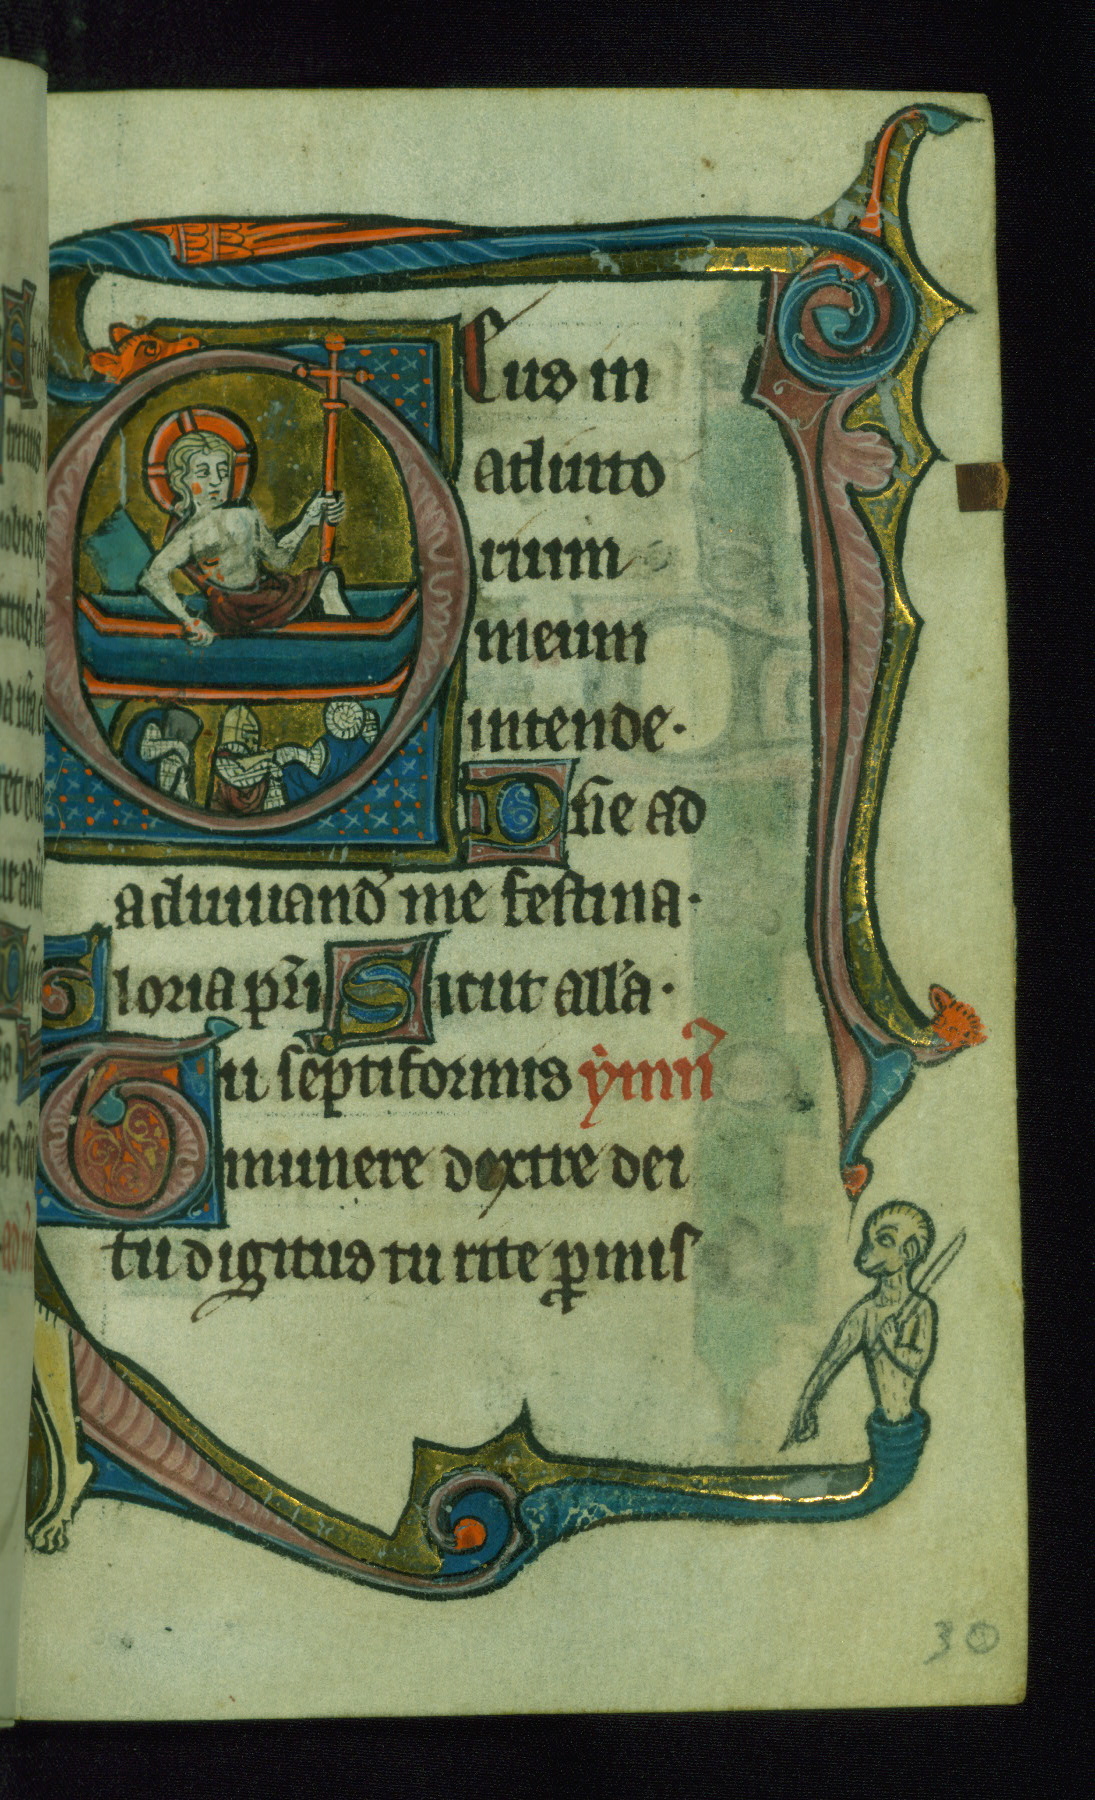 Deus in
adiuto
rium
meum
intende·
Dñe ad
adiuuand' me festina·
Gloria pr̃i Sicut all'a·
Tu septiformis ẏmñ
munere dextre dei
tu digitus tu rite ꝓmis
30